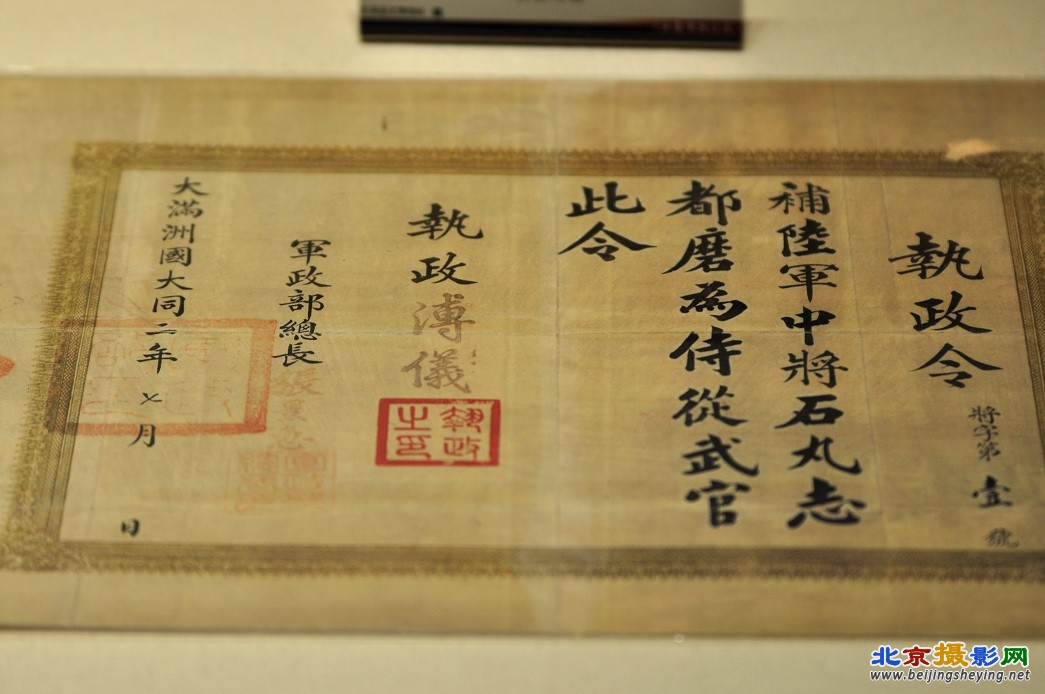 執政令
將字第壹號
補陸軍中將石丸志
都磨為侍從武官
此令
執政溥儀
執政之印
軍政部總長
大滿洲國大同二年七月 日
北京摄影网
www.beijingsheying.net